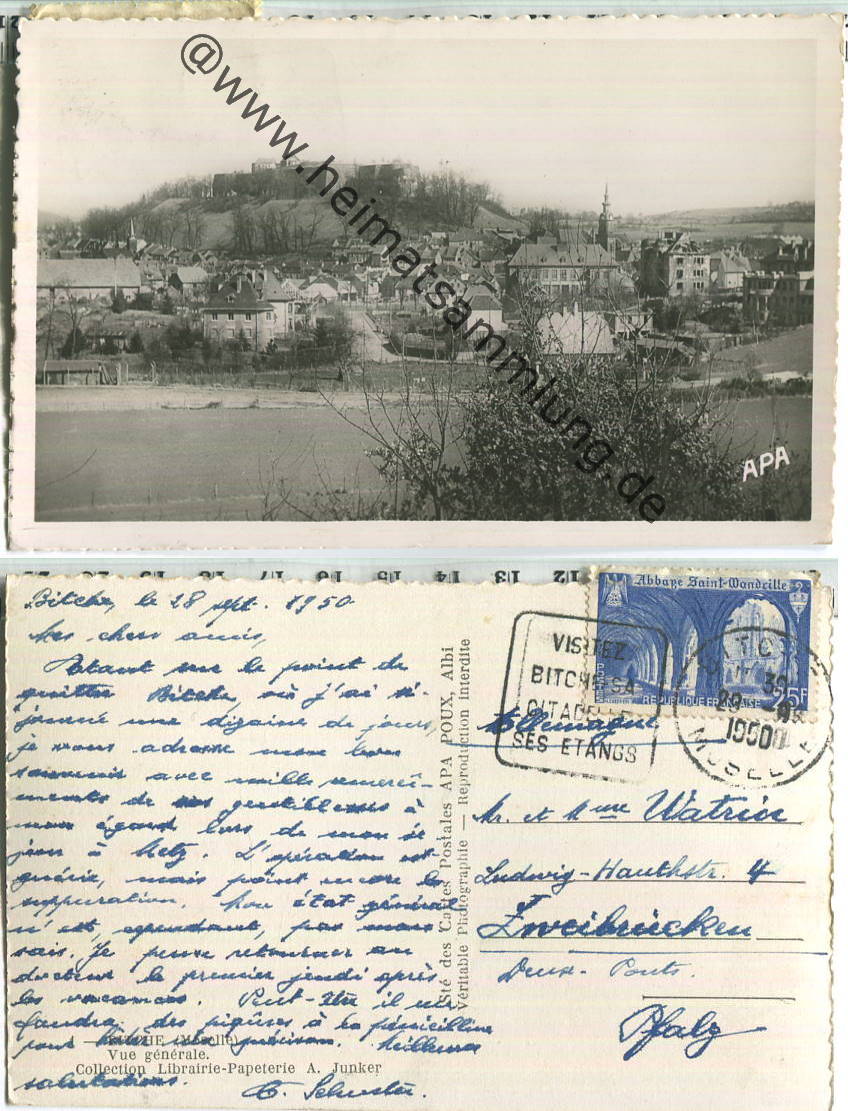 @www.heimatsammlung.de
APA
22 21 20 19 18 17 16 15 14 13 12
Bitche, le 28 sept. 1950
Mes chers amis,
Etant sur le point de
quitter Bitche, où j'ai sé-
journé une dizaine de jours,
je vous adresse mon bon
souvenir avec mille remercî-
ments de vos gentillesses à
mon égard lors de mon sé
jour à Metz. L'opération est
guérie, mais point encore la
suppuration. Mon état général
n'est, cependant, pas mau-
vais. Je pense retourner au
docteur le premier jeudi après
les vacances. Peut-être il me
faudra des piqûres à la pénicilline
pour hâter la guérison. Meilleures
salutations.
C. Schuster.
— BITCHE (Moselle)
Vue générale.
Collection Librairie-Papeterie A. Junker
Sté des Cartes Postales APA POUX, Albi
Véritable Photographie — Reproduction Interdite
VISITEZ
BITCHE SA
CITADE
SES ETANGS
Abbaye Saint-Wandrille
REPUBLIQUE FRANÇAISE
15F
MOSELLE
Allemagne
Mr. et Mme Watrin
Ludwig-Hauthstr. 4
Zweibrücken
Deux-Ponts.
Pfalz